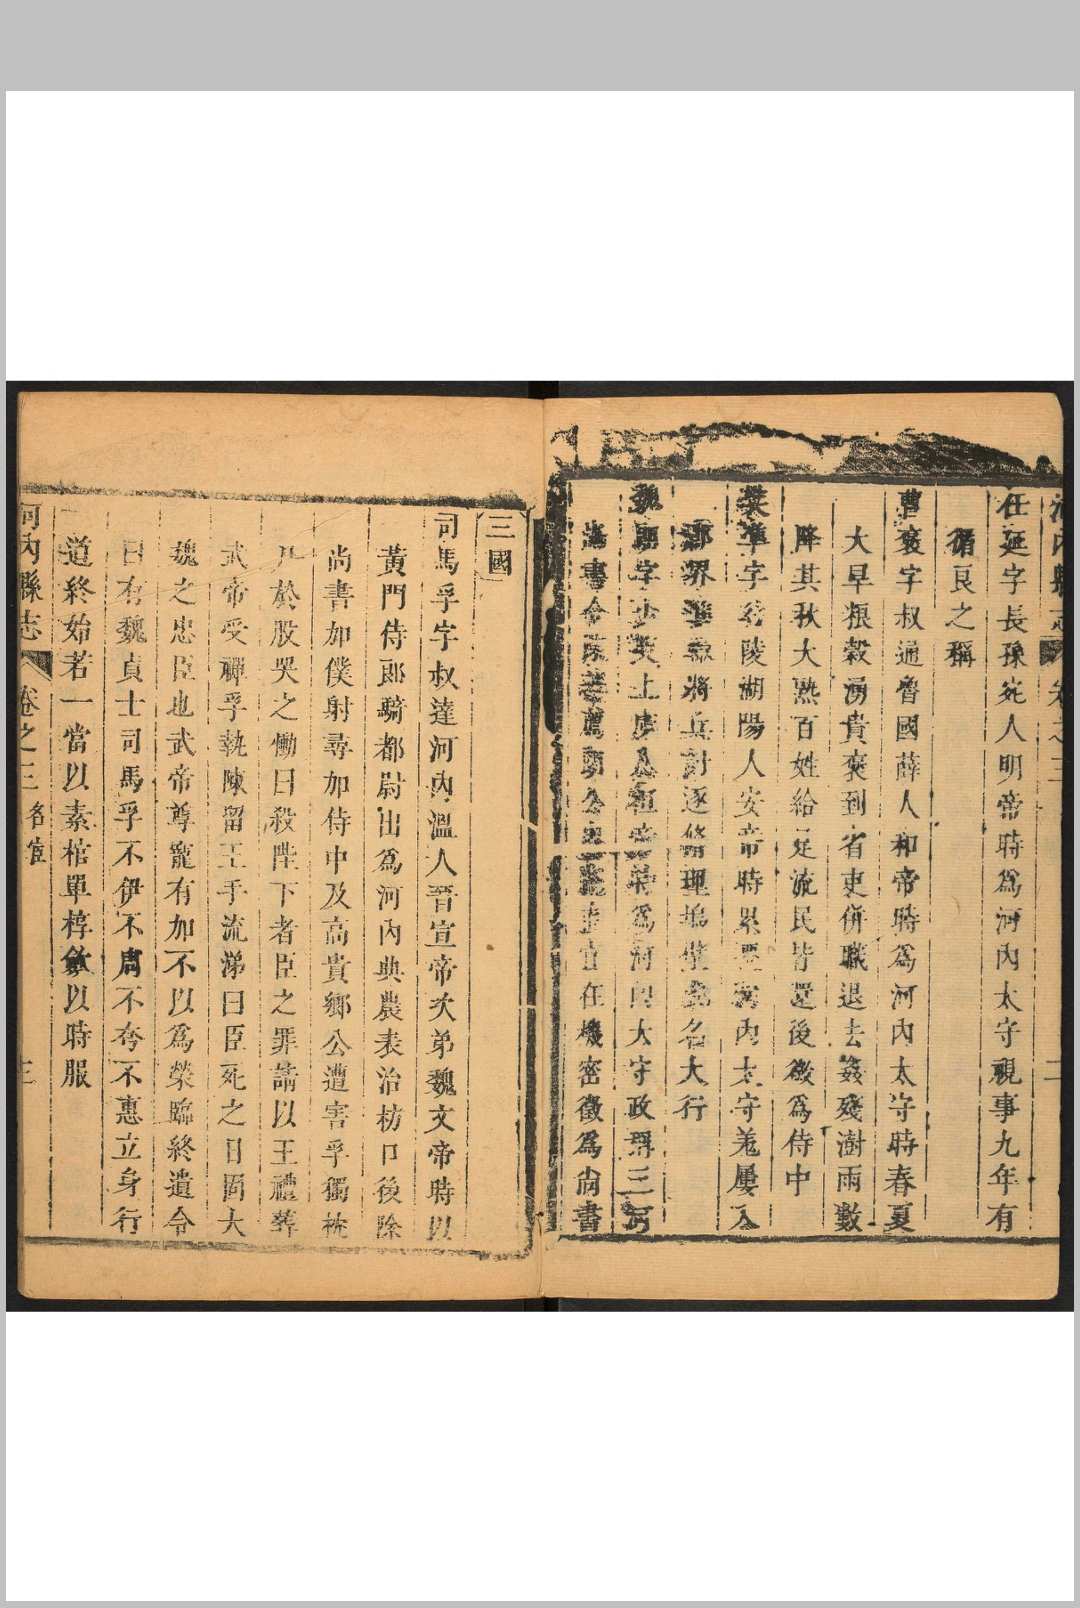 河內縣志 卷之三 二
任延字長孫宛人明帝時爲河內太守視事九年有
循良之稱
曹褒字叔通魯國薛人和帝時爲河內太守時春夏
大旱粮穀湧貴褒到省吏併職退去姦殘澍雨數
降其秋大熟百姓給足流民皆還後徵爲侍中
樊準字幼陵湖陽人安帝時累遷河內太守羌屢入
郡界準輒將兵討逐脩理塢壁威名大行
魏朗字少英上虞人桓帝時爲河內太守政稱三河
尚書令陳蕃薦朗公忠亮直宜在機密徵爲尚書
三國
司馬孚字叔達河內溫人晉宣帝次弟魏文帝時以
黃門侍郎騎都尉出爲河內典農表治枋口後除
尚書加僕射尋加侍中及高貴鄉公遭害孚獨枕
尸於股哭之慟曰殺陛下者臣之罪請以王禮葬
武帝受禪孚執陳留王手流涕曰臣死之日固大
魏之忠臣也武帝尊寵有加不以爲榮臨終遺令
曰有魏貞士司馬孚不伊不周不夸不惠立身行
道終始若一當以素棺單椁斂以時服
河內縣志 卷之三 名宦 三